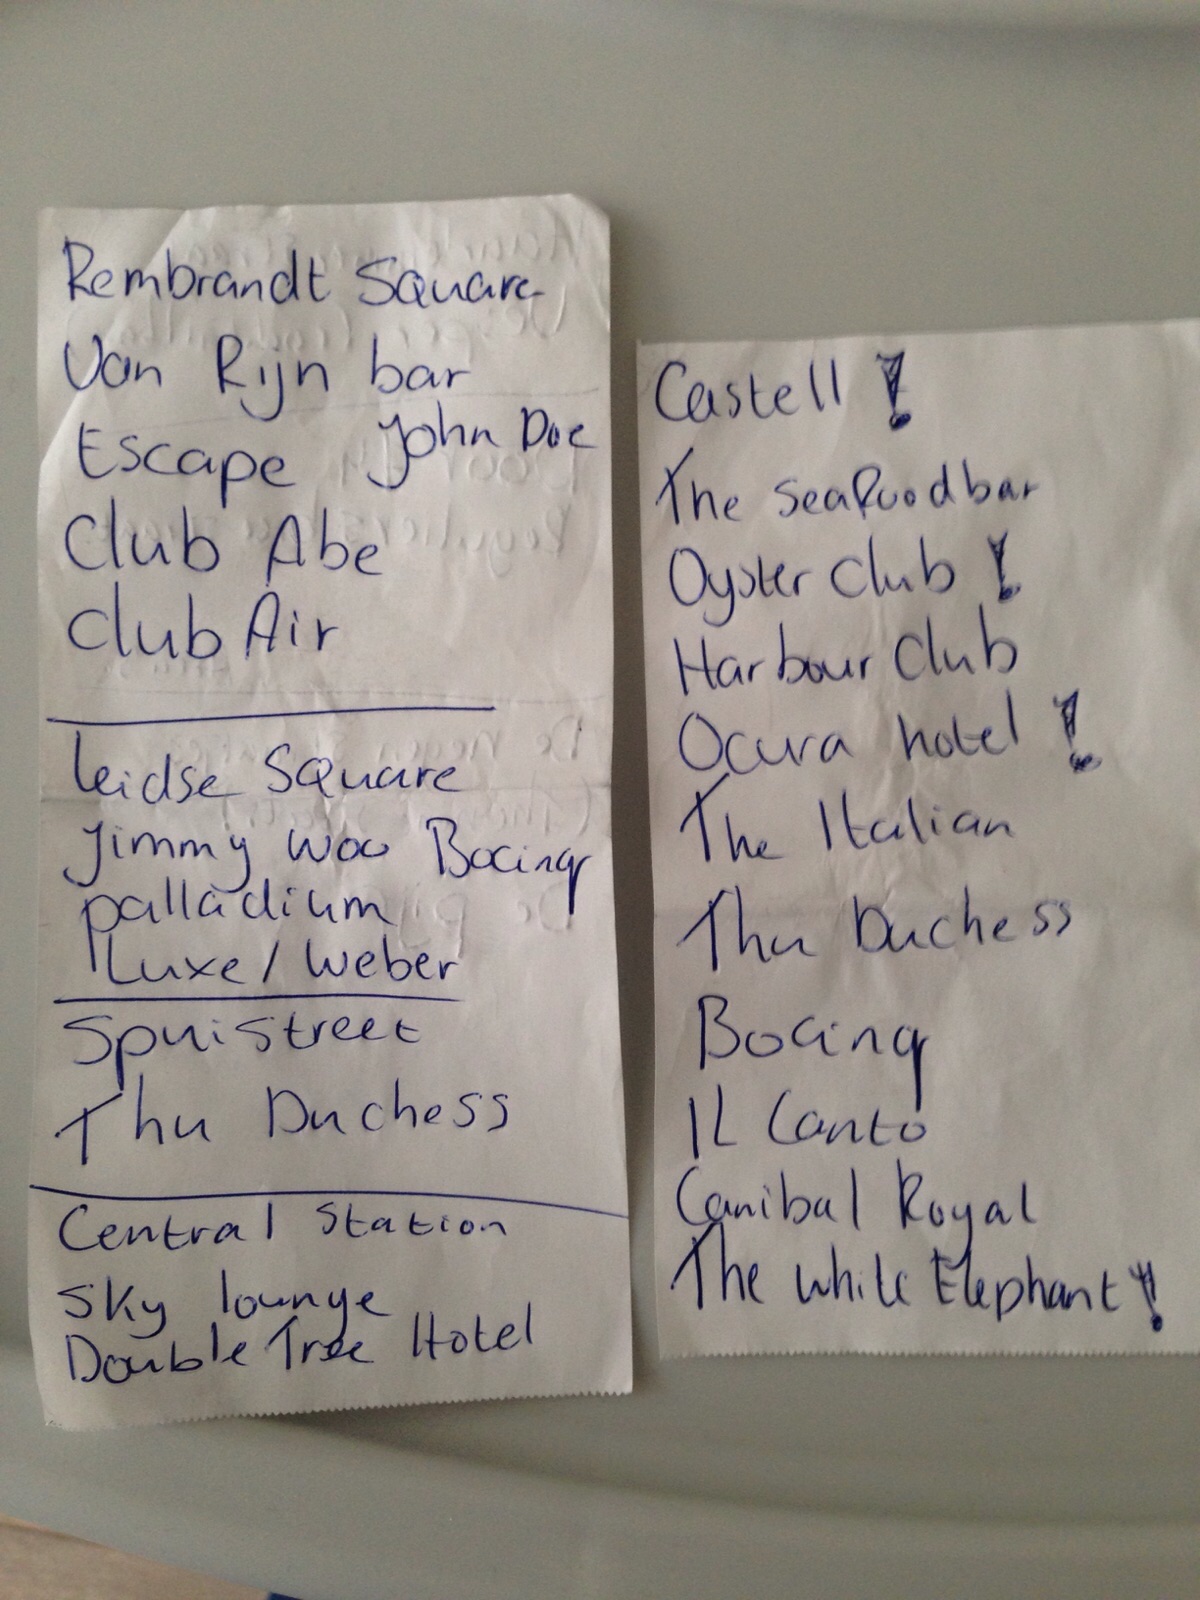 Rembrandt Square
Van Rijn bar
Escape John Doe
Club Abe
Club Air
Leidse Square
Jimmy Woo Bocinq
palladium
Luxe / Weber
Spuistreet
Thu Duchess
Central Station
Sky lounge
Double Tree Hotel
Castell !
The seafoodbar
Oyster Club !
Harbour Club
Ocura hotel !
The Italian
Thu Duchess
Bocinq
IL Canto
Canibal Royal
The white Elephant !